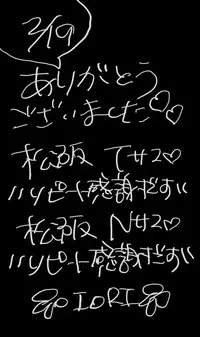 2/19
ありがとう
ございました♡♡
松阪 Tサス♡
リピート感謝だす!!
松阪 Nサス♡
リピート感謝だす!!
IORI